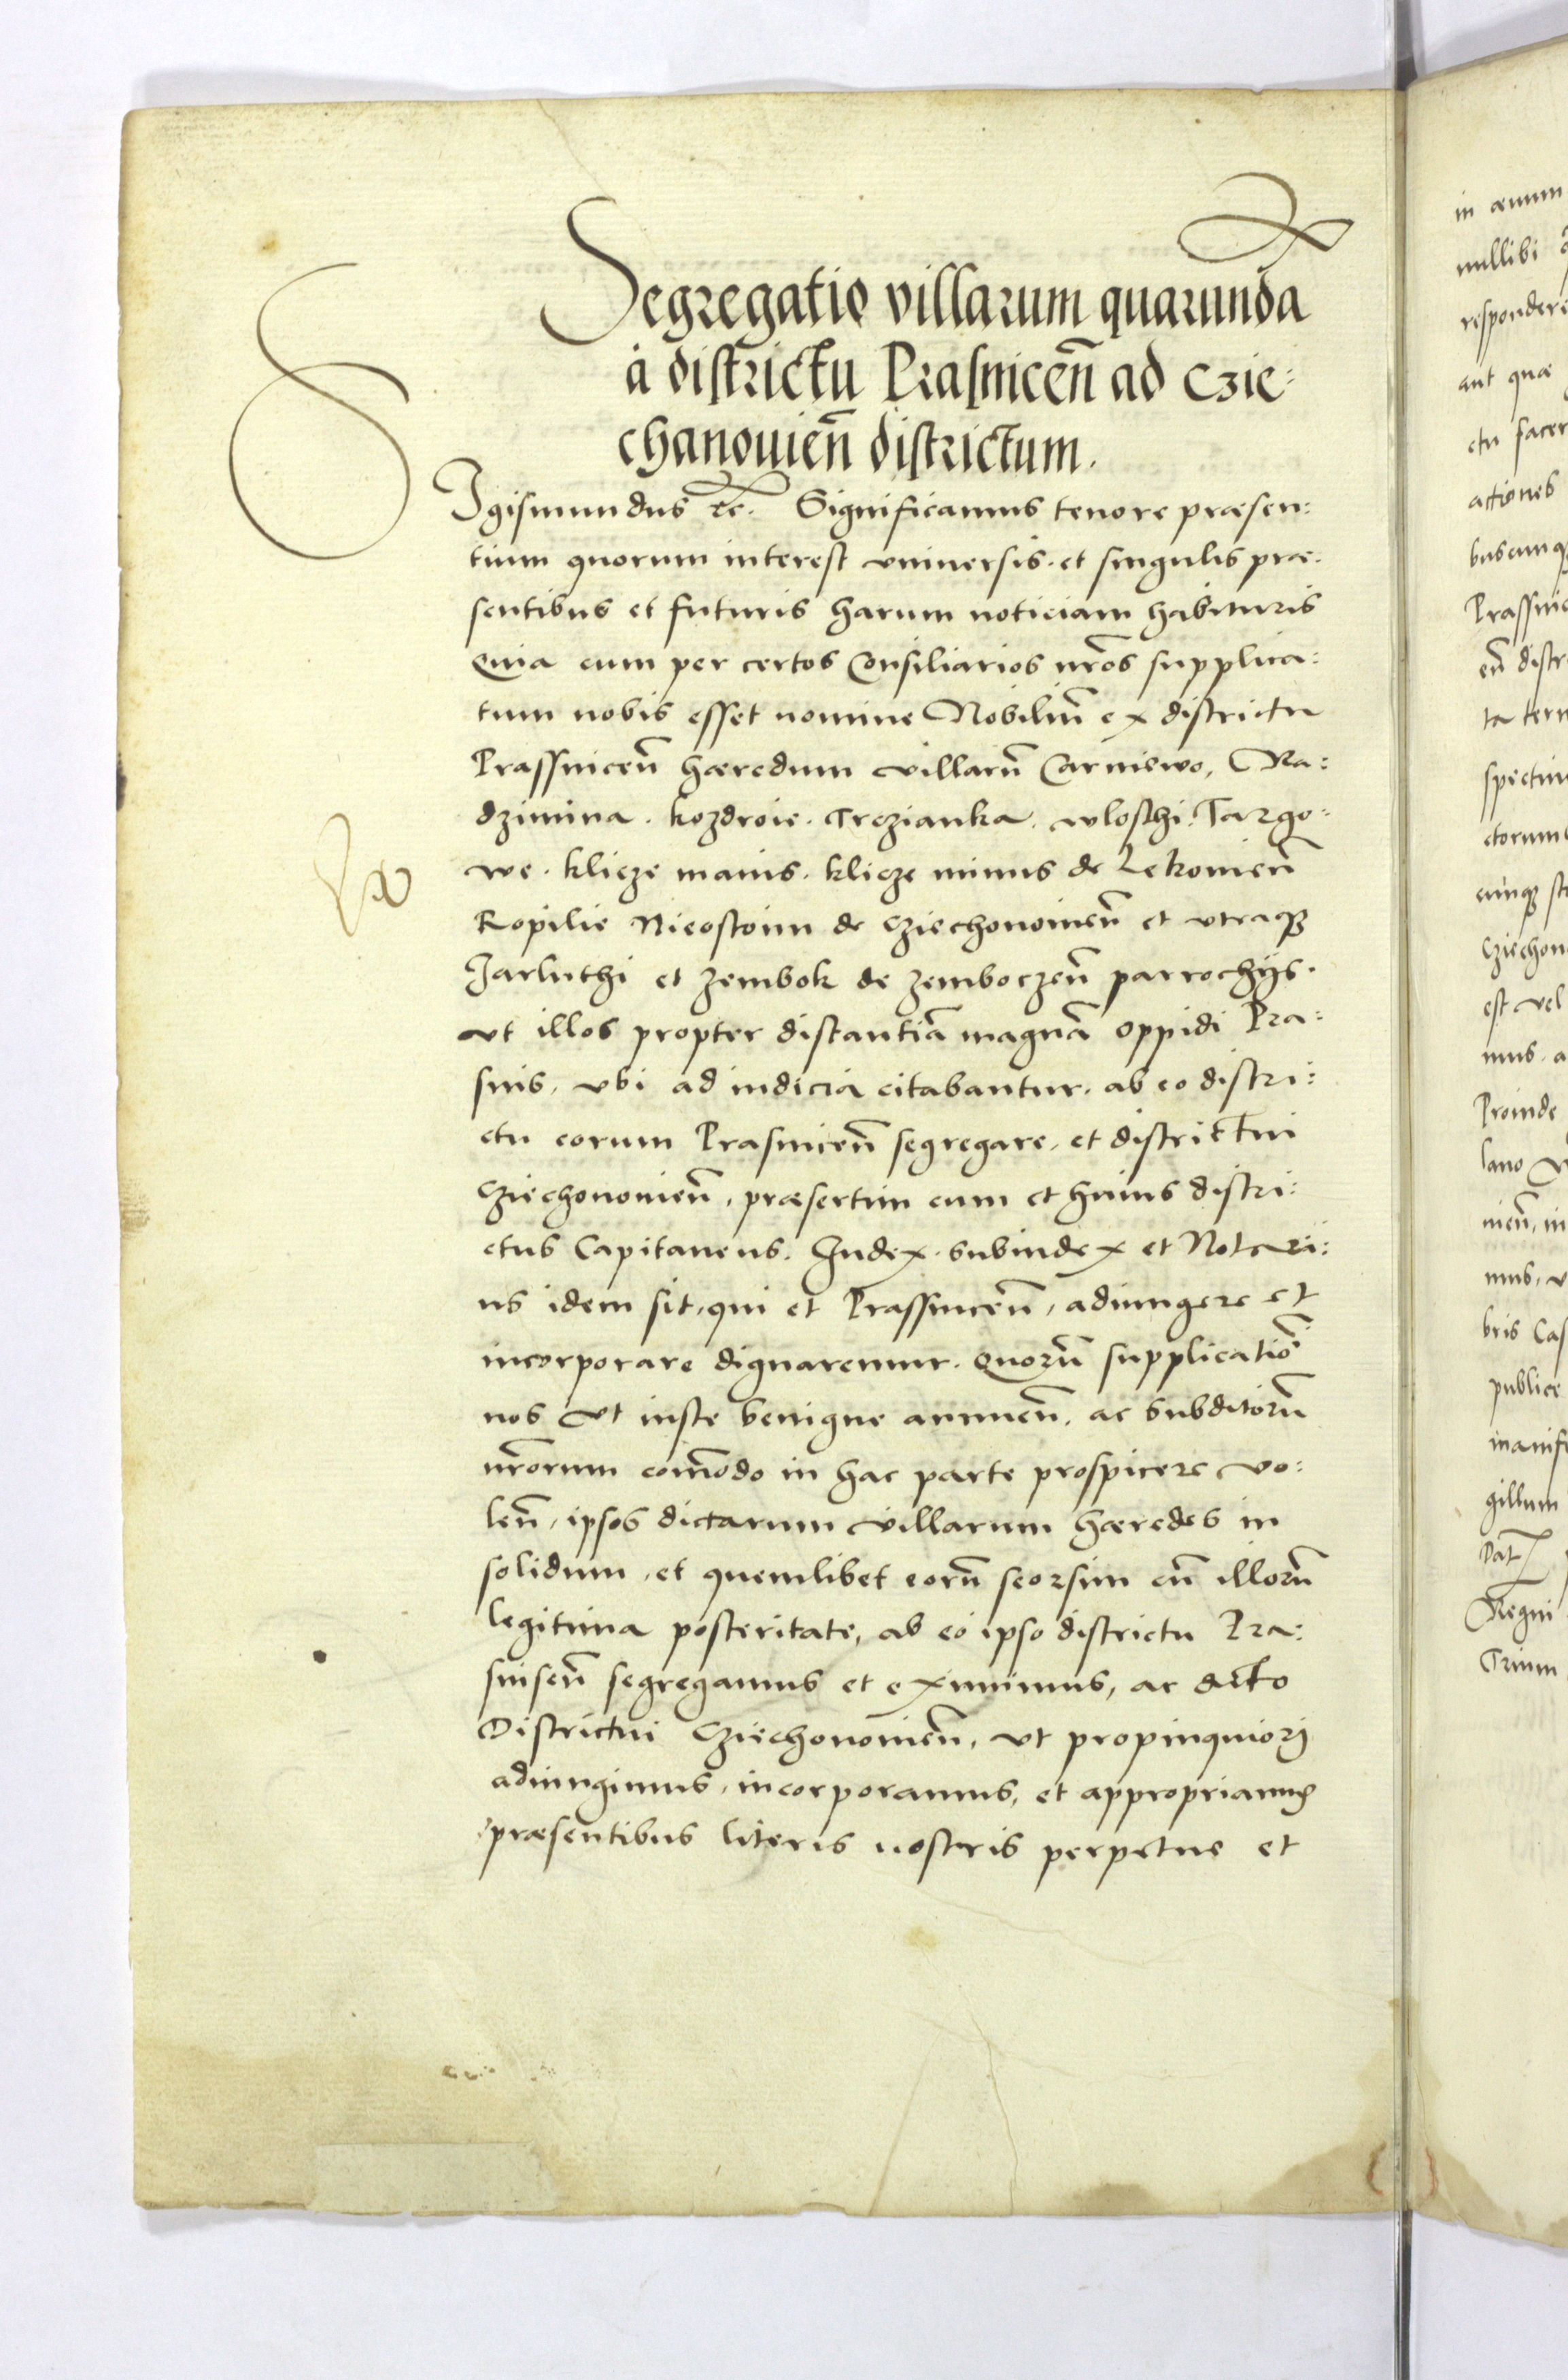 Segregatio villarum quarundã
à districtu Prasniceñ ad Czie:
chanouieñ districtum.
Sigismundus etc. Significamus tenore præsen:
tium quorum interest vniuersis. et singulis præ.
sentibus et futuris harum noticiam habituris
Quia cum per certos Consiliarios nr̃os supplica:
tum nobis esset nomine Nobiliũ ex districtu
Prassniceñ hæredum villarũ Carniewo, Ra:
dzimina. Kozdroie. Trczianka. wloschi. Targo:
we. Klicze maius. Klicze minus de Lekowieñ
Kopilie Nieostoim de Cziechonouieñ et vtraq3
Jarluthi et Zembok de Zemboczeñ parrochijs.
vt illos propter distantiã magnã oppidi Pra:
snis, vbi ad iudicia citabantur. ab eo distri:
ctu eorum Prasniceñ segregare, et districtui
Cziechonouieñ, præsertim cum et huius distri:
ctus Capitaneus. Iudex. Subiudex et Notari:
us idem sit, qui et Prassniceñ, adiungere et
incorporare dignaremur. Quorũ supplicatiõi
nos vt iuste benigne annueñ. ac subditorũ
nr̃orum com̃odo in hac parte prospicere vo:
leñ, ipsos dictarum villarum hæredes in
solidum, et quemlibet eorũ seorsim cũ illorũ
legitima posteritate, ab eo ipso districtu Pra:
sniseñ segregamus et eximimus, ac dicto
Districtui Cziechonouieñ, vt propinquiori
adiungimus, incorporamus, et appropriamus
præsentibus literis nostris perpetue et
in æuum
nullibi
respondere
aut quæ
ctu facer
actiones
buscunq3
Prassnic
eñ distr
ta term
spectiu
ctorum
cunq3
Cziechon
est vel
mus. a
Proinde
lano
uieñ, in
mus, v
bris Cas
publice
manife
gillum
Dat
Regni
Trium